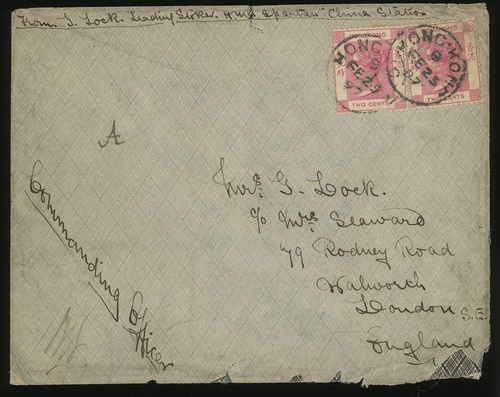 From. S. Lock. Leading Stoker. HMS Spartan China Station
HONG KONG
B
FE 25
97
HONG KONG
B
FE 25
97
TWO CENTS
TWO CENTS
A
Commanding Officer
Mrs. G. Lock.
c/o Mrs Seaward
79 Rodney Road
Walworth
London S.E.
England